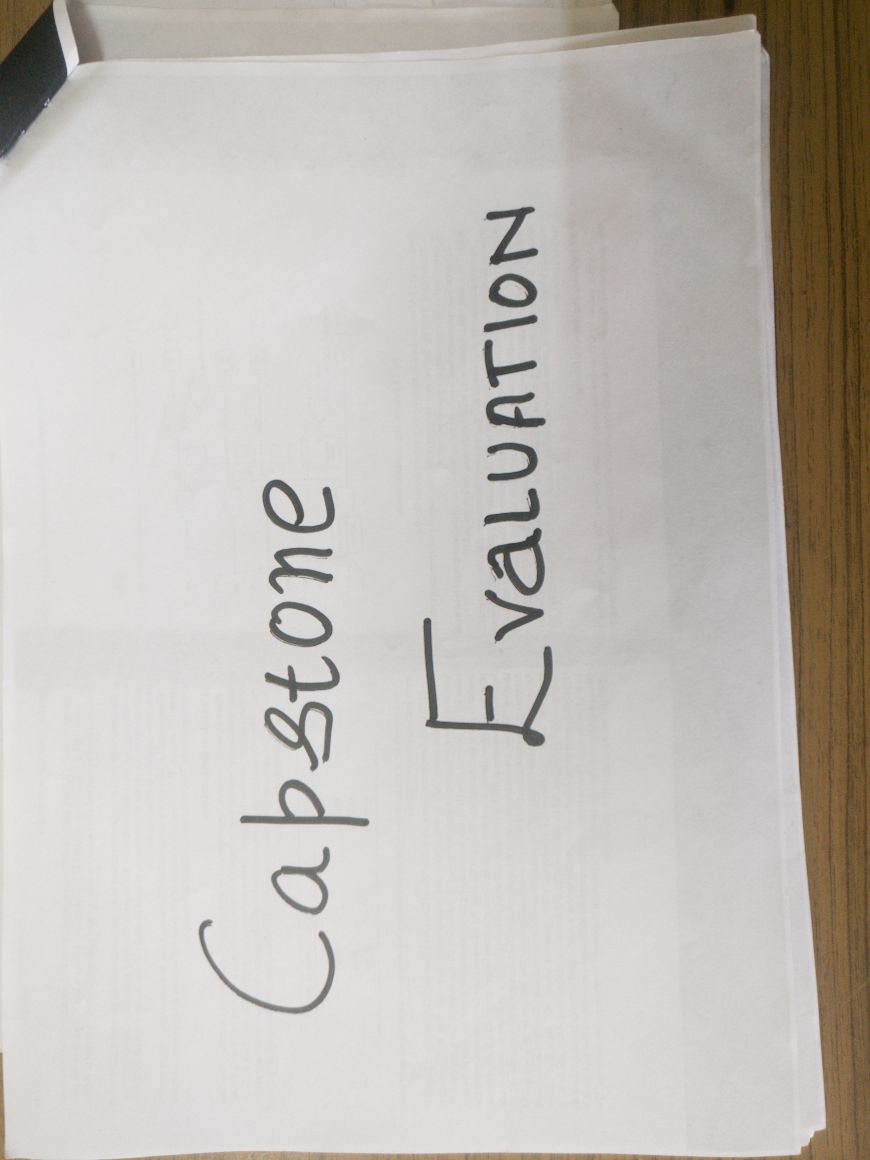 Capstone
EvaLUATION